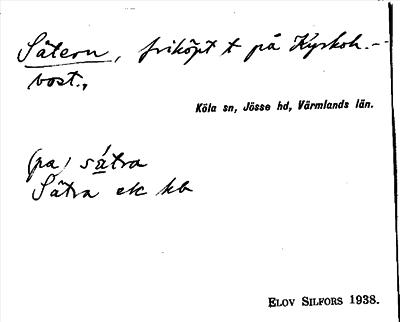 Sätern, friköpt t på Kyrkoh.-
bost.,
Köla sn, Jösse hd, Värmlands län.
(pa) sá̱tra
Sätra ek kb
ELOV SILFORS 1938.